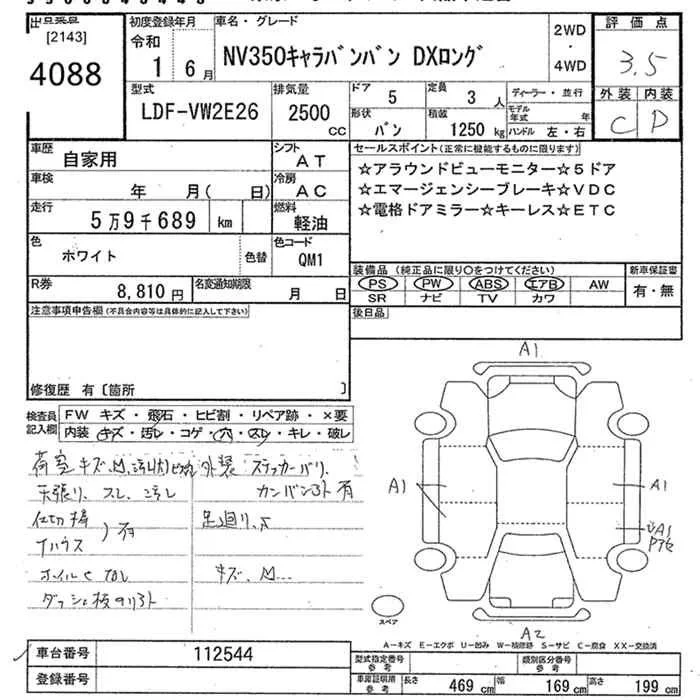 出品票
[2143]
4088
初度登録年月
令和
1 6月
車名・グレード
NV350キャラバンバン DXロング
2WD
・
4WD
評価点
3.5
外装 内装
C D
型式
LDF-VW2E26
排気量
2500
CC
ドア
5
定員
3人
形状
バン
積載
1250kg
ディーラー・並行
モデル年式 年
ハンドル 左・右
車歴
自家用
シフト
AT
車検
年 月( 日)
冷房
AC
走行
5万9千689 km
燃料
軽油
色
ホワイト
色替
色コード
QM1
R券
8,810円
名変通知期限
月 日
セールスポイント(正常に機能するものに限ります)
☆アラウンドビューモニター☆5ドア
☆エマージェンシーブレーキ☆VDC
☆電格ドアミラー☆キーレス☆ETC
装備品(純正品に限り○をつけてください)
PS PW ABS エアB AW
SR ナビ TV カワ
新車保証書
有・無
後日品
注意事項申告欄(不具合内容等は具体的に記入して下さい)
修復歴 有〔箇所 〕
検査員
記入欄
FW キズ・飛石・ヒビ割・リペア跡・×要
内装・キズ・汚レ・コゲ・穴・スレ・キレ・破レ
荷室キズ、凹、汚レ
外装 ステッカーバリ、
カンバン
有
天張り、スレ、汚レ
仕切棒
有
足廻り、
ホイルC
キズ、凹...
ダッシュ板
A1
A1
A1
A1
A2
スペア
A-キズ E-エクボ U-凹み W-補修跡 S-サビ C-腐食 XX-交換済
車台番号
112544
登録番号
型式指定番号
参考
類別区分番号
参考
車庫証明用
参考
長さ
469 cm
幅
169 cm
高さ
199 cm